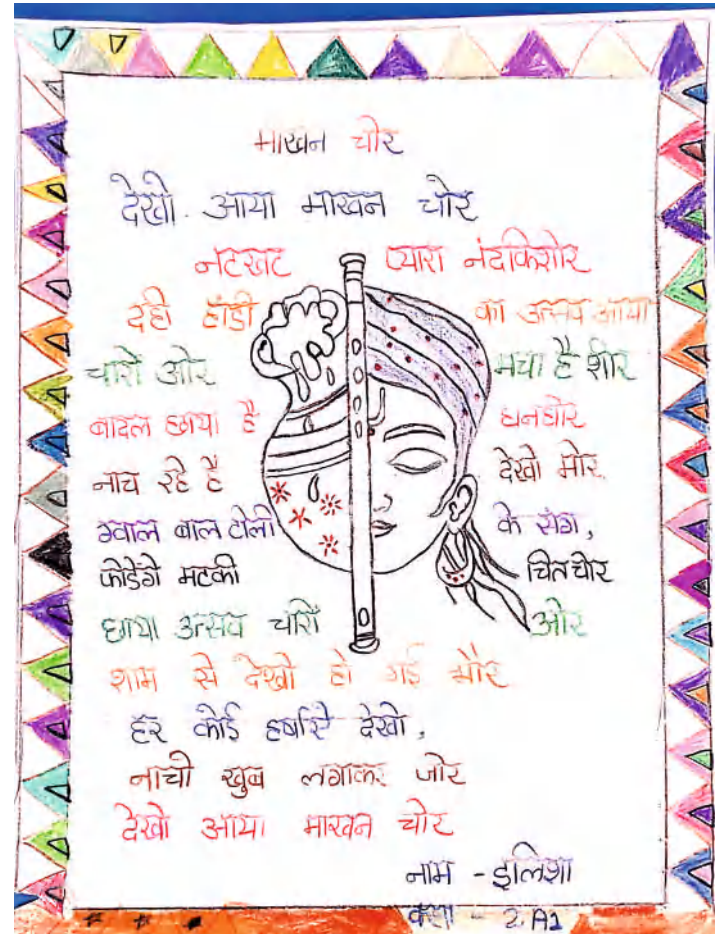 माखन चोर
देखो आया माखन चोर
नटखट प्यारा नंदकिशोर
दही हांडी का उत्सव आया
चारों ओर मचा है शोर
बादल छाया है घनघोर
नाच रहे है देखो मोर
ग्वाल बाल टोली के संग,
फोडेंगे मटकी चितचोर
छाया उत्सव चारों ओर
शाम से देखो हो गई भौर
हर कोई हर्षाये देखो,
नाचो खुब लगाकर जोर
देखो आया माखन चोर
नाम - इलिशा
कक्षा - 2.A1